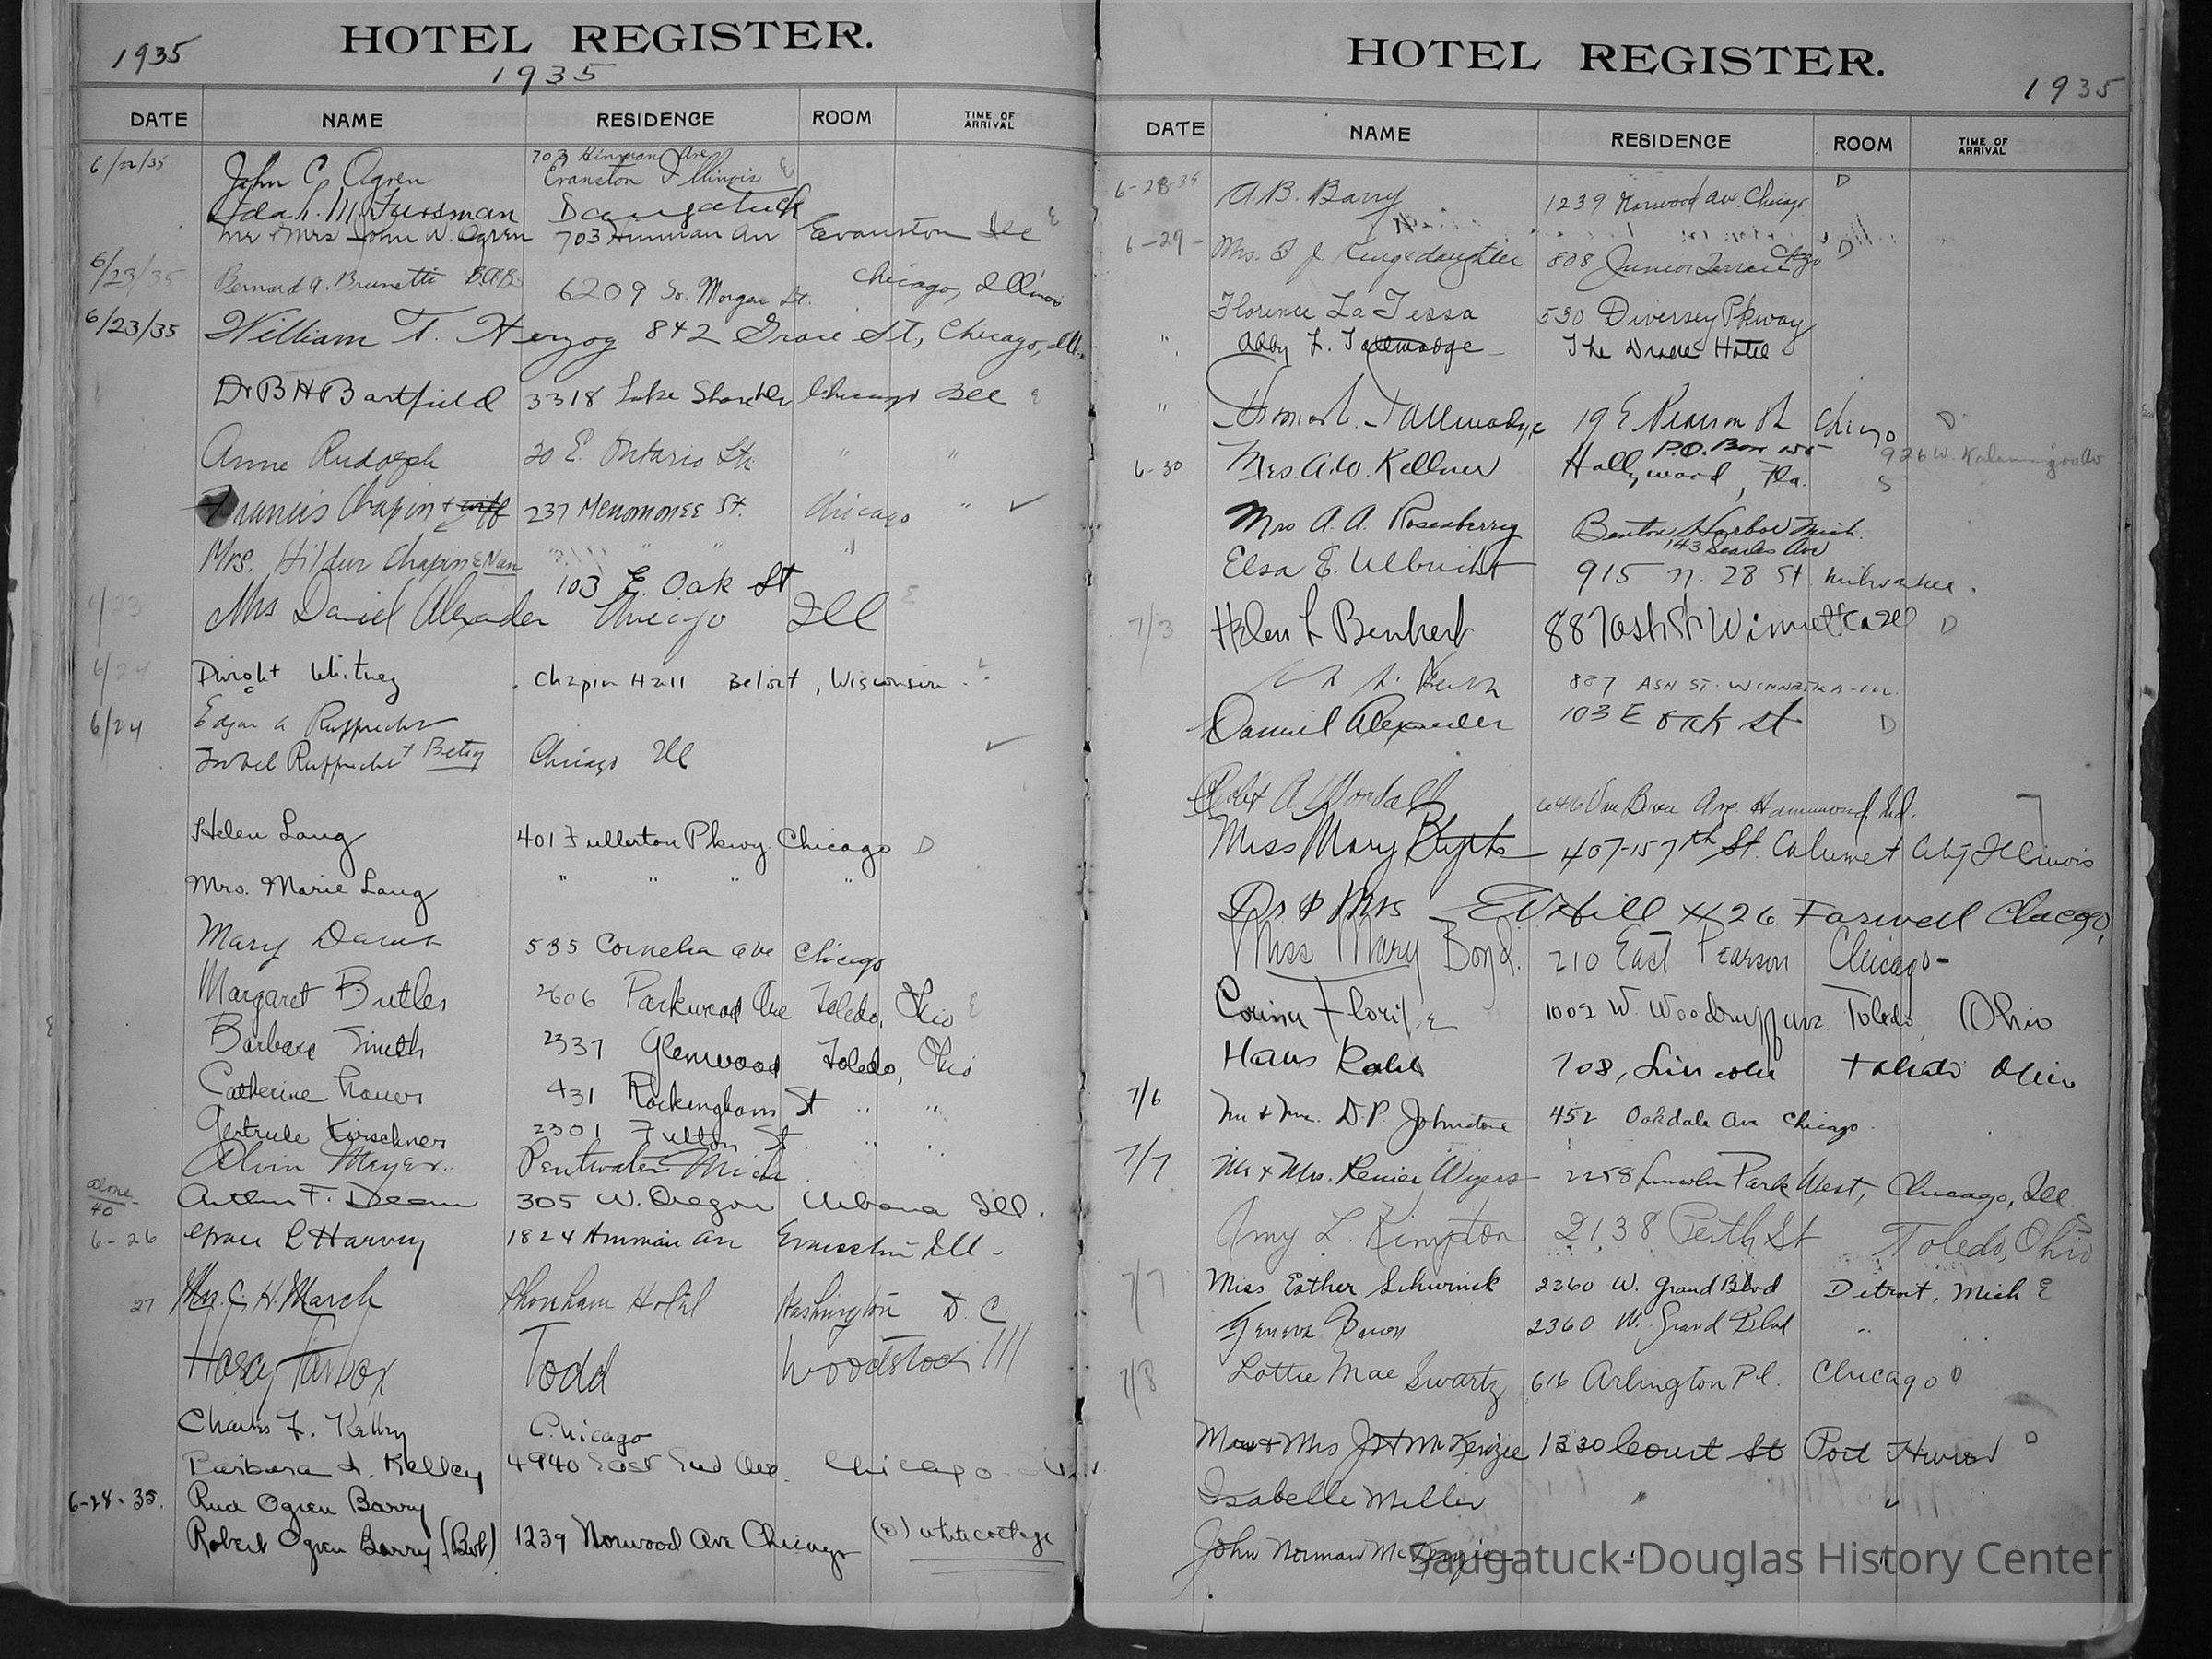 1935 HOTEL REGISTER.
1935
DATE NAME RESIDENCE ROOM TIME OF ARRIVAL
703 Hinman Ave
John C. Ogren Evanston Illinois E
Saugatuck
Mr & Mrs John W. Ogren 703 Hinman Av Evanston Ill E
6/23/35 Bernard A. Brunetti 6209 So. Morgan St. Chicago, Illinois
6/23/35 William T. Herzog 842 Grace St, Chicago, Ill.
Dr B H Bartfield 3318 Lake Shore Dr Chicago Ill E
Anne Rudolph 20 E. Ontario St. " "
Francis Chapin + wife 237 Menomonee St. Chicago " ✓
Mrs. Hildur Chapin & Nan " " " "
103 E. Oak St
6/23 Mrs Daniel Alexander Chicago Ill E
6/24 Dwight Whitney Chapin Hall Beloit, Wisconsin
6/24 Edgar A Rupprecht
Isobel Rupprecht + Betsy Chicago Ill ✓
Helen Lang 401 Fullerton Pkwy. Chicago D
Mrs. Marie Lang " " " "
Mary 535 Cornelia Ave Chicago
Margaret Butler 2606 Parkwood Ave Toledo, Ohio E
Barbara Smith 2337 Glenwood Toledo, Ohio
Catherine 431 Rockingham St " "
Gertrude Kirschner 2301 Fulton St " "
Alvin Meyer Pentwater Mich
alone 40 Arthur F. Deam 305 W. Oregon Urbana Ill.
6-26 Grace L Harvey 1824 Hinman Av Evanston Ill-
27 Mrs. C. H. March Shoreham Hotel Washington D. C.
Todd Woodstock Ill
Charles F. Kelley Chicago
Barbara L. Kelley 4940 East End Ave. Chicago
6-28-35. Rua Ogren Barry
Robert Ogren Barry (Bob) 1239 Norwood Ave Chicago (D) white cottage
HOTEL REGISTER.
1935
DATE NAME RESIDENCE ROOM TIME OF ARRIVAL
6-28-35 A. B. Barry 1239 Norwood Ave. Chicago D
6-29- Mrs. F J. King & daughter 808 Junior Terrace Chgo D
Florence La Tessa 530 Diversey Pkway
" Abby L. Tallmadge The Drake Hotel
" Tallmadge 19 E Pearson St Chicago D
6-30 Mrs. A. W. Kellner P.O. Box Hollywood, Fla. 926 W. Kalamazoo Av
S
Mrs A. A. Rosenberry Benton Harbor Mich.
143 Searles Ave
Elsa E. Ulbricht 915 N. 28 St Milwaukee.
7/3 Helen L Benkert 887 Ash St Winnetka Ill D
887 ASH ST. WINNETKA-ILL.
Daniel Alexander 103 E Oak St D
Robt A Woodall 6446 Van Buren Ave. Hammond, Ind.
Miss Mary 407-157th St. Calumet City Illinois
Dr & Mrs Hill 1126 Farwell Chicago,
Miss Mary Boyd. 210 East Pearson Chicago-
1002 W. Woodruff Ave. Toledo, Ohio
Hans 708, Lincoln Toledo Ohio
7/6 Mr & Mrs. D. P. Johnstone 452 Oakdale Ave Chicago.
7/7 Mr & Mrs. Renier Wyers 2258 Lincoln Park West, Chicago, Ill.
Amy L. Kimpton 2138 Perth St Toledo, Ohio
7/7 Miss Esther Schwinck 2360 W. Grand Blvd Detroit, Mich E
Geneva 2360 W. Grand Blvd " "
7/8 Lottie Mae Swartz 616 Arlington Pl. Chicago D
Mr & Mrs J H McKenzie 1330 Court St Port Huron D
Isabelle Miller " "
John Norman McKenzie " "
Saugatuck-Douglas History Center